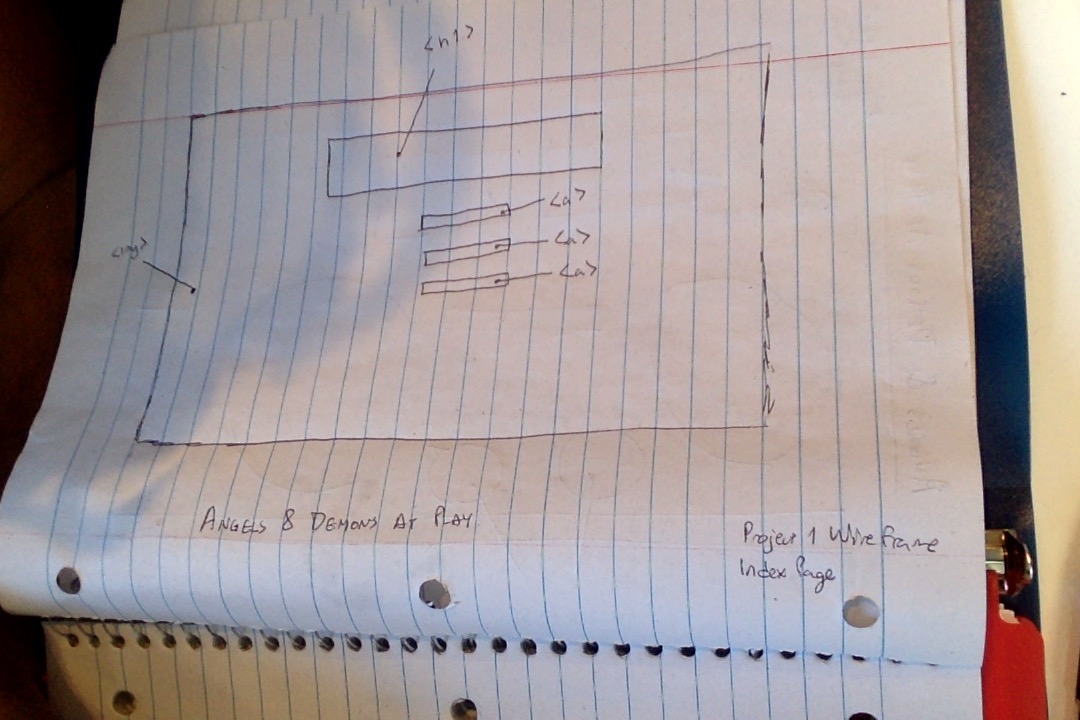 <h1>
<a>
<a>
<a>
<img>
ANGELS & DEMONS AT PLAY
Project 1 Wireframe
Index Page